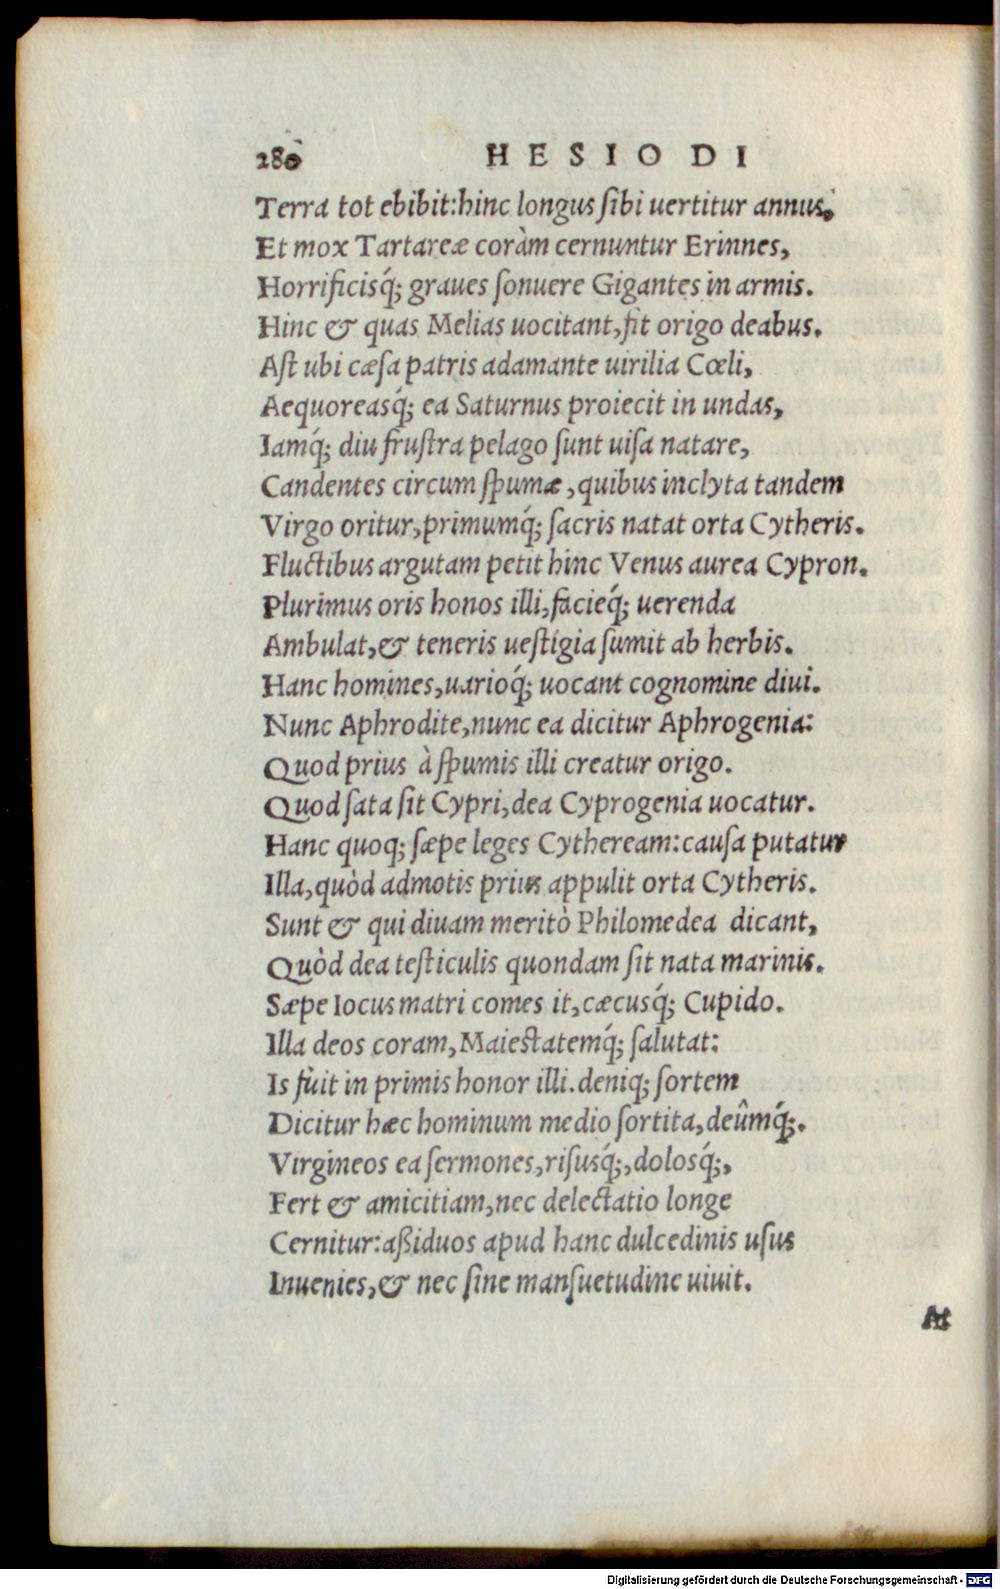 280 HESIODI
Terra tot ebibit:hinc longus ſibi uertitur annus.
Et mox Tartareæ coràm cernuntur Erinnes,
Horrificisq́; graues ſonuere Gigantes in armis.
Hinc & quas Melias uocitant,fit origo deabus.
Aſt ubi cæſa patris adamante uirilia Cœli,
Aequoreasq́; ea Saturnus proiecit in undas,
Iamq́; diu fruſtra pelago ſunt uiſa natare,
Candentes circum ſpumæ,quibus inclyta tandem
Virgo oritur,primumq́; ſacris natat orta Cytheris.
Fluctibus argutam petit hinc Venus aurea Cypron.
Plurimus oris honos illi,facieq́; uerenda
Ambulat,& teneris ueſtigia ſumit ab herbis.
Hanc homines,uarioq́; uocant cognomine diui.
Nunc Aphrodite,nunc ea dicitur Aphrogenia:
Quod prius à ſpumis illi creatur origo.
Quod ſata ſit Cypri,dea Cyprogenia uocatur.
Hanc quoq; ſæpe leges Cytheream:cauſa putatur
Illa,quòd admotis prius appulit orta Cytheris.
Sunt & qui diuam meritò Philomedea dicant,
Quòd dea teſticulis quondam ſit nata marinis.
Sæpe Iocus matri comes it,cæcusq́; Cupido.
Illa deos coram,Maieſtatemq́; ſalutat:
Is fuit in primis honor illi.deniq; ſortem
Dicitur hæc hominum medio ſortita,deûmq́;.
Virgineos ea ſermones,riſusq́;,dolosq́;,
Fert & amicitiam,nec delectatio longe
Cernitur:aßiduos apud hanc dulcedinis uſus
Inuenies,& nec ſine manſuetudine uiuit.
At
Digitalisierung gefördert durch die Deutsche Forschungsgemeinschaft - DFG